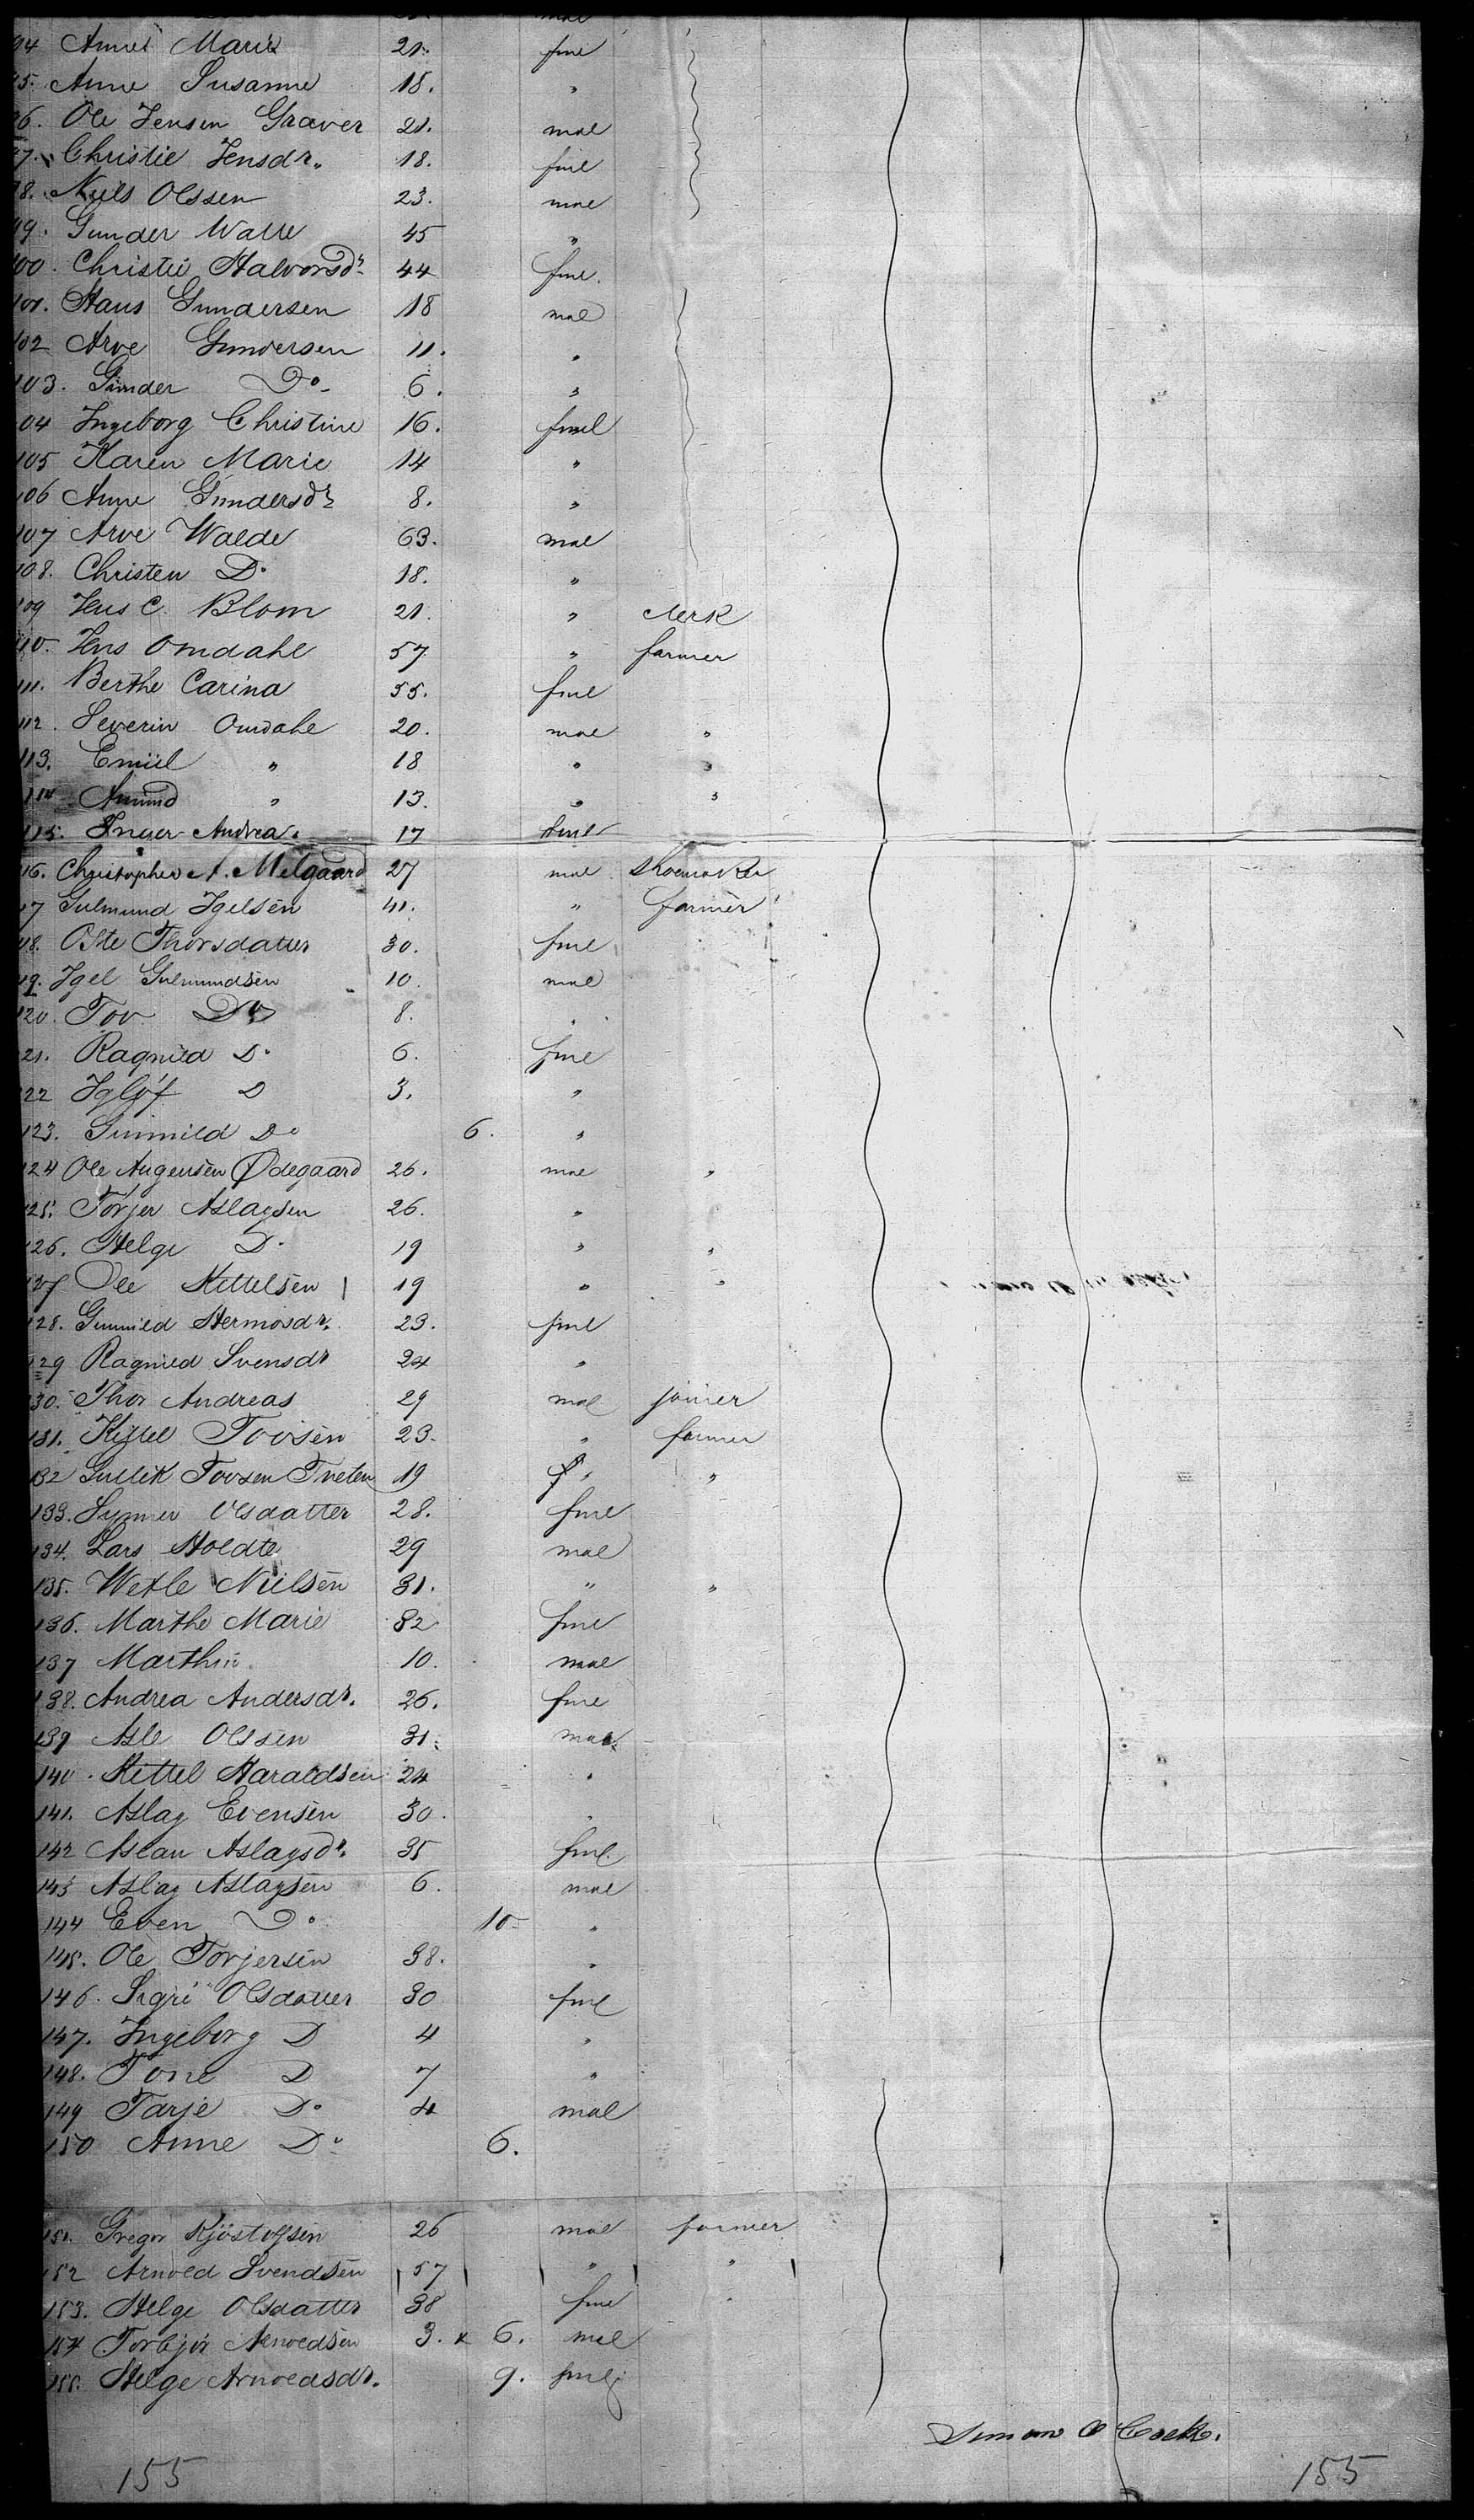 94 Anne Marie 21. fml
95. Anne Susanne 18. "
96. Ole Jensen Graver 21. mal
97. Christie Jensdr. 18. fml
98. Niels Olssen 23. mal
99. Gunder Walle 45 "
100. Christie Halvorsdr 44 fml.
101. Hans Gundersen 18 mal
102 Arve Gundersen 11. "
103. Gunder Do 6. "
104 Ingeborg Christine 16. fmel
105 Karen Marie 14 "
106 Anne Gundersdr 8. "
107 Arve Walde 63. mal
108. Christen Do 18. "
109 Jens C. Blom 21. " clerk
110. Jens Omdahl 57 " farmer
111. Berthe Carina 55. fml
112. Severin Omdahl 20. mal "
113. Emiil " 18 " "
114 Amund " 13. " "
115. Inger Andrea. 17 fml
116. Christopher A. Melgaard 27 mal shoemaker
117 Gulmund Igelsen 41. " farmer
118. Oste Thorsdatter 30. fml
119. Igel Gulmundsen 10. mal
120. Tov Do 8. "
121. Ragnild Do 6. fml
122 D 3. "
123. Gunnild Do 6. "
124 Ole Augensen Ødegaard 26. mal "
125. Torjer Aslagsen 26. " "
126. Helge Do 19 " "
127 Ole Kettelsen 19 " "
128. Gunnild Hermosdr. 23. fml
129 Ragnild Svensdr 24 "
130. Thor Andreas 29 mal joiner
131. Kittel Tovsen 23. " farmer
132 Gullik Tovsen Tveten 19 " "
133. Olsdatter 28. fml
134. Lars Holdte 29 mal
135. Wetle Nielsen 31. " "
136. Marthe Marie 32 fml
137 Marthin 10. mal
138. Andrea Andersdr. 26. fml
139 Asle Olssen 31. mal
140. Kettel Haraldsen 24 "
141. Aslag Evensen 30. "
142 Aslau Aslagsdr. 35 fml.
143 Aslag Aslagsen 6. mal
144 Even Do 10 "
145. Ole Torjersen 38. "
146. Sigri Olsdatter 30 fml
147. Ingeborg D 4 "
148. Tone D 7 "
149 Tarje Do 4 mal
150 Anne Do 6.
151. Gregor Kjöstolfsen 26 mal farmer
152 Arnold Svendsen 57 " "
153. Helge Olsdatter 38 fml
154 Torbjör Arnoldsen 3. x 6. mal
155. Helge Arnoldsdr. 9. fml
Simon Cock.
155 155